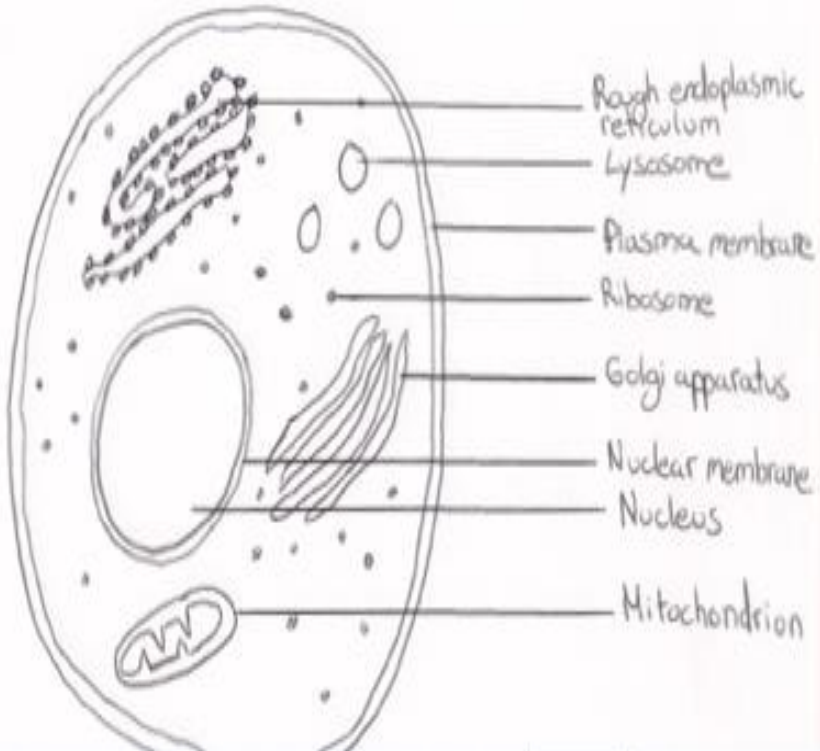 Rough endoplasmic
reticulum
Lysosome
Plasma membrane
Ribosome
Golgi apparatus
Nuclear membrane
Nucleus
Mitochondrion